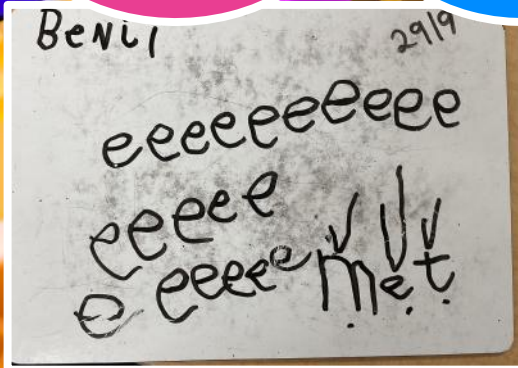 BeNil 29/9
eeeeeeeeee
eeeee
e eeeee met